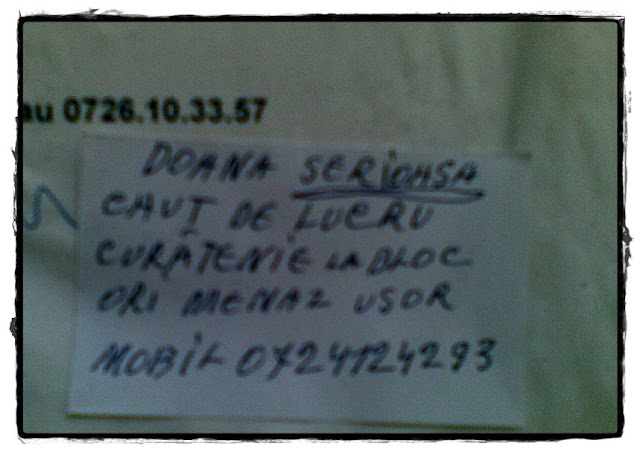 au 0726.10.33.57
DOANA SERIOASA
CAUT DE LUCRU
CURĂTENIE LA BLOC
ORI MENAZ UȘOR
MOBIL 0724124293